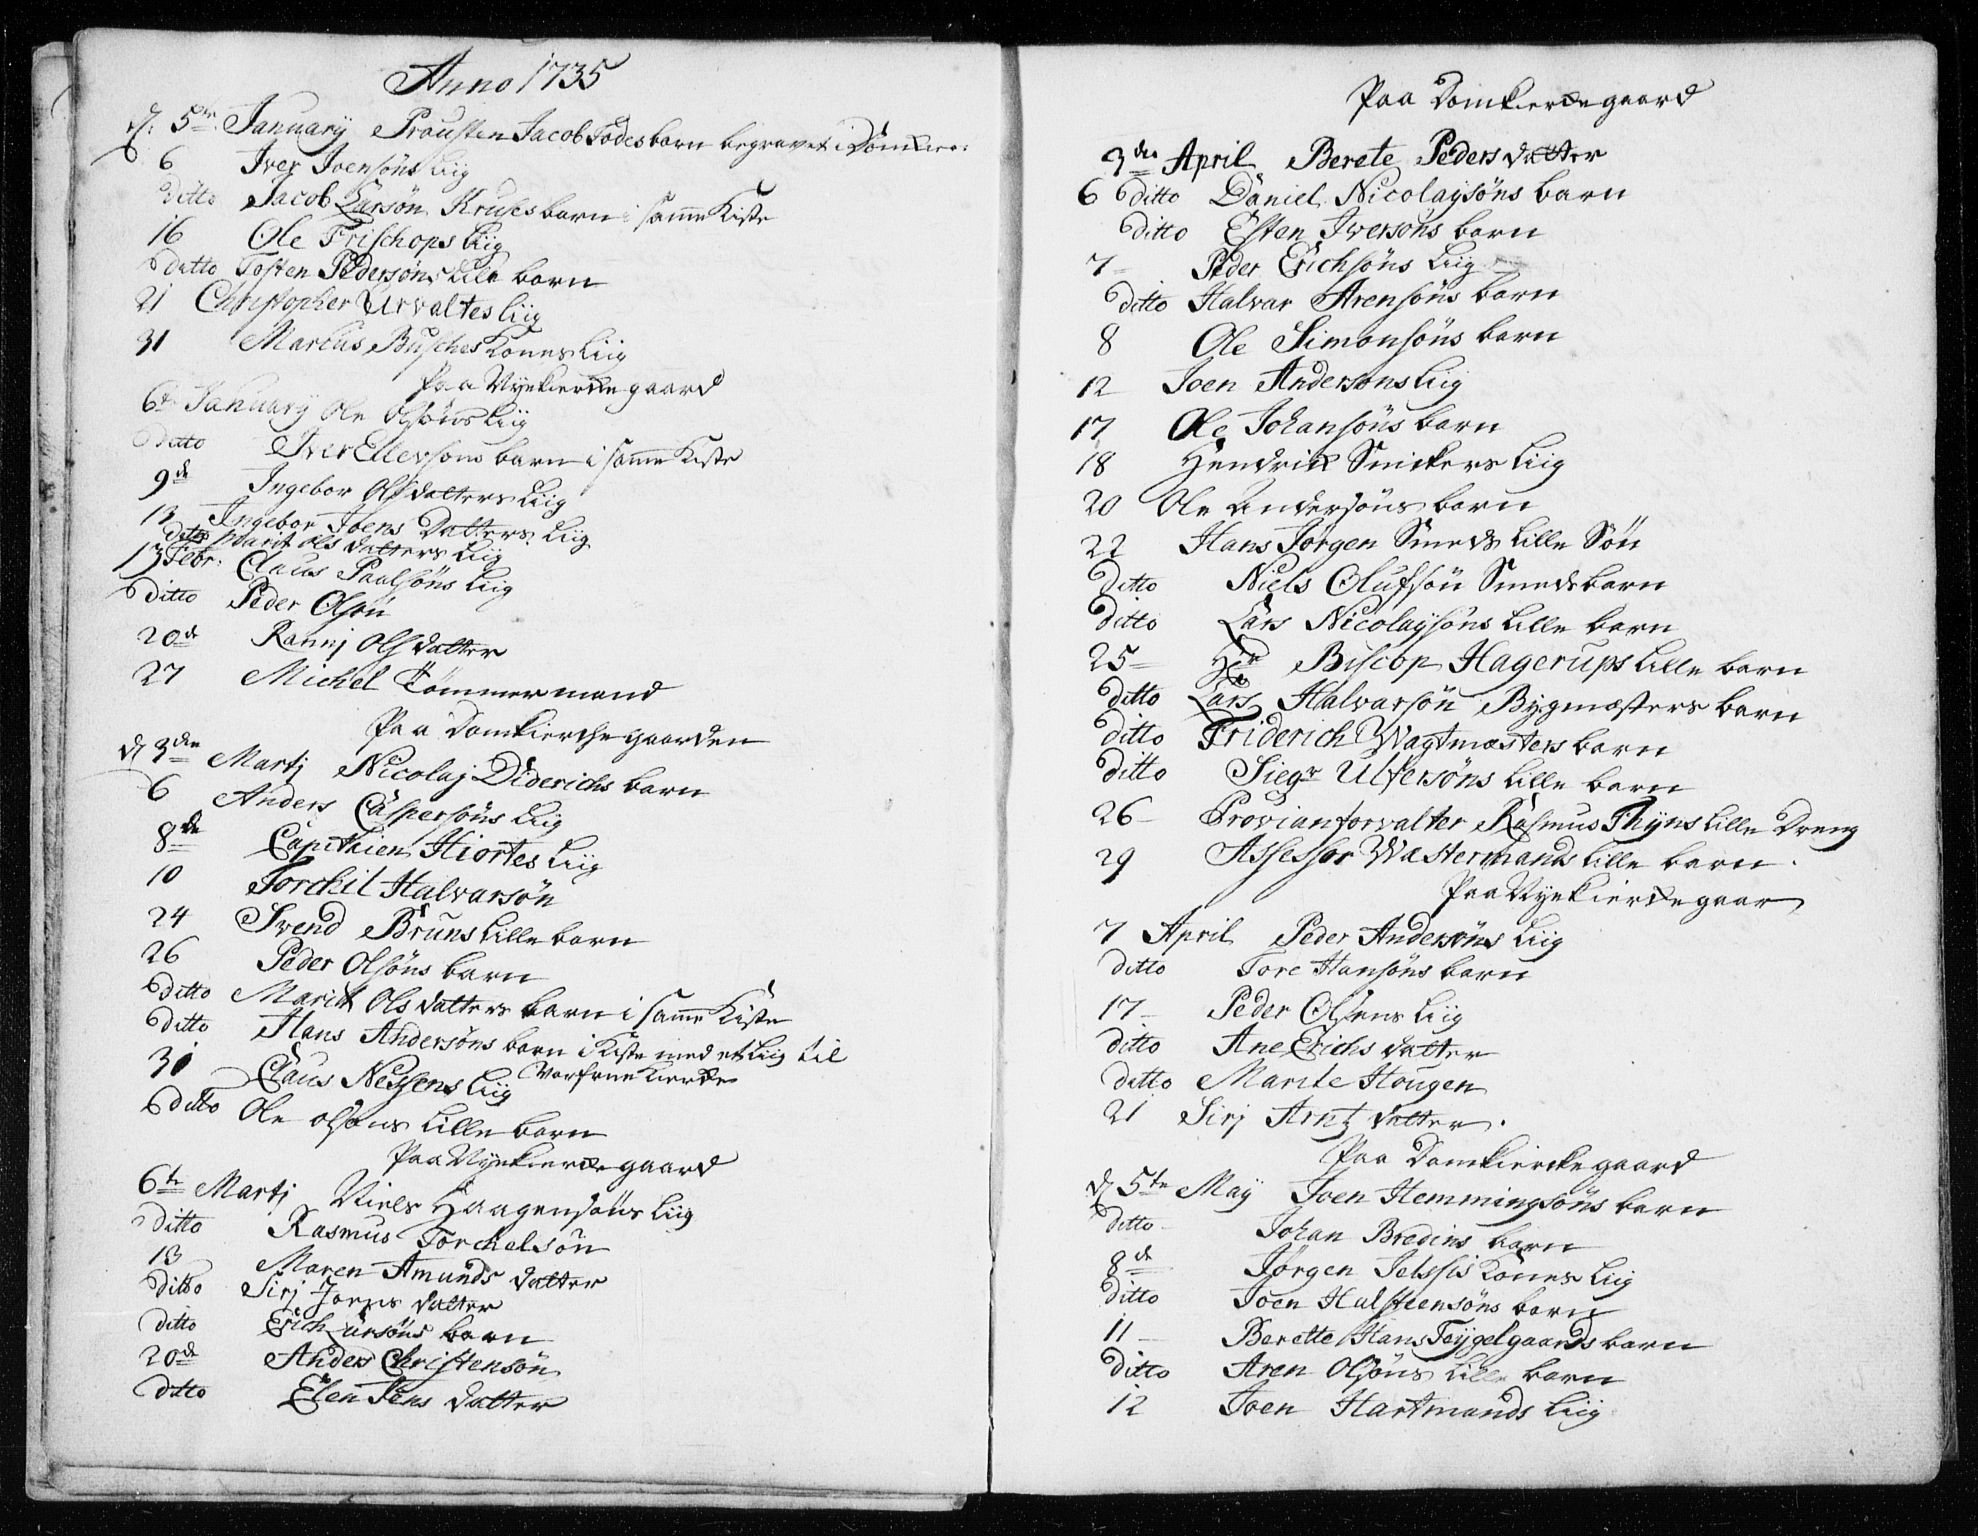 Anno 1735
d: 5te January Prousten Jacob Todes barn begravet i Domkier:
6 Iver Joensöns Liig
ditto Jacob Larsön Kruses barn i samme Kiste
16 Ole Frischops Liig
ditto Tosten Pedersöns Lille barn
21 Christopher Urvaltes Liig
31 Marcus Busches Kones Liig
Paa Nyekierkegaard
6te January Ole Olsöns Liig
ditto Iver Ellevsöns barn i samme Kiste
9de Ingebor Olsdatters Liig
13 Ingebor Joens Datters Liig
ditto Marit Olsdatters Liig
13 Febr: Claus Paalsöns Liig
ditto Peder Olsön
20de Rannj Olsdatter
27 Michel Tömmermand
Paa Domkierchegaarden
d 3die Martj Nicolaj Diderichs barn
6 Anders Caspersöns Liig
8de Capithien Hiortes Liig
10 Torchil Halvarsön
24 Svend Bruns Lille barn
26 Peder Olsöns barn
ditto Marit Olsdatters barn i samme Kiste
ditto Hans Andersöns barn i Kiste med et Liig til
Vorfrue Kierke
31 Claus Neissens Liig
ditto Ole Olsöns Lille barn
Paa Nyekierkegaard
6te Martj Niels Haagensöns Liig
ditto Rasmus Torchelsön
13 Maren Amunds datter
ditto Sirj Joens datter
ditto Erich Larsöns barn
20de Anders Christensön
ditto Elen Jens datter
Paa Domkierkegaard
3die April Berete Peders datter
6 ditto Daniel Nicolaysöns barn
ditto Esten Iversöns barn
7 Peder Erichsöns Liig
ditto Halvar Arensöns barn
8 Ole Simonsöns barn
12 Joen Andersons Liig
17 Ole Johansöns barn
18 Hendrik Smickers Liig
20 Ole Andersöns barn
22 Hans Jörgen Smeds Lille Sön
ditto Niels Olufsön Smeds barn
ditto Lars Nicolaysöns Lille barn
25 Hr Biscop Hagerups Lille barn
ditto Lars Halvarsön Bygmesters barn
ditto Friderich Wagtmesters barn
ditto Siegr Ulfersöns Lille barn
26 Provianforvalter Rasmus Thyns Lille Dreng
29 Assessor Wæstermands Lille barn.
Paa Nyekierkegaar
7 April Peder Andersöns Liig
ditto Tore Hansöns barn
17 Peder Olsens Liig
ditto Ane Erichs datter
ditto Marite Hougen
21 Sirj Arntz datter.
Paa Domkierckegaard
d 5te May Joen Hemmingsöns barn
ditto Johan Bredins barn
8de Jörgen Jelssis Kones Liig
ditto Joen Halsteensöns barn
11 Berette Hans Teygelgaards barn
ditto Aren Olsöns Lille barn
12 Joen Hartmands Liig